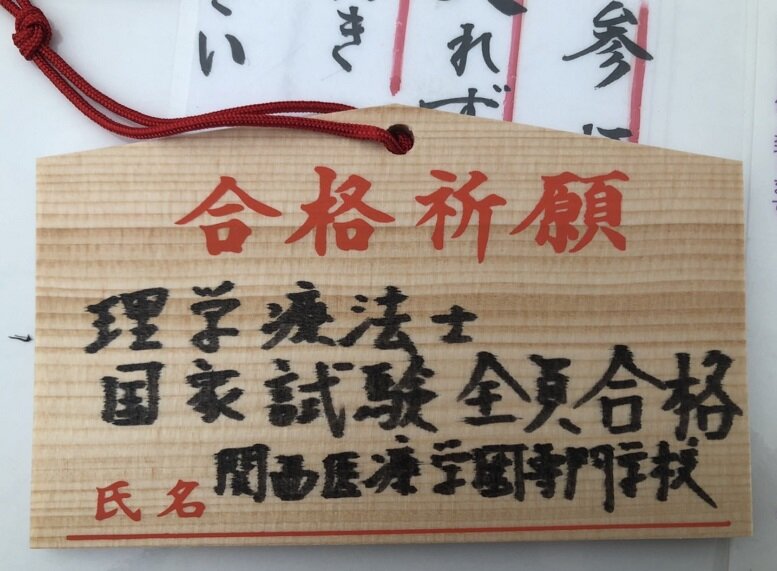 合格祈願
理学療法士
国家試験全員合格
氏名 関西医療学園専門学校
れず
き
い